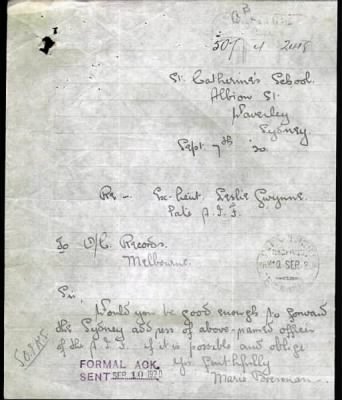 St. Catherine's School.
Albion St.
Waverley
Sydney.
Sept 7th '20.
Re - Ex-Lieut. Leslie Gwynne.
Late A.I.F.
To O/C. Records.
Melbourne.
Sir
Would you be good enough to forward
the Sydney address of above-named officer
of the A.I.F. if it is possible and oblige
Yrs faithfully
Marie Brennan.
FORMAL ACK.
SENT SEP 10 1920